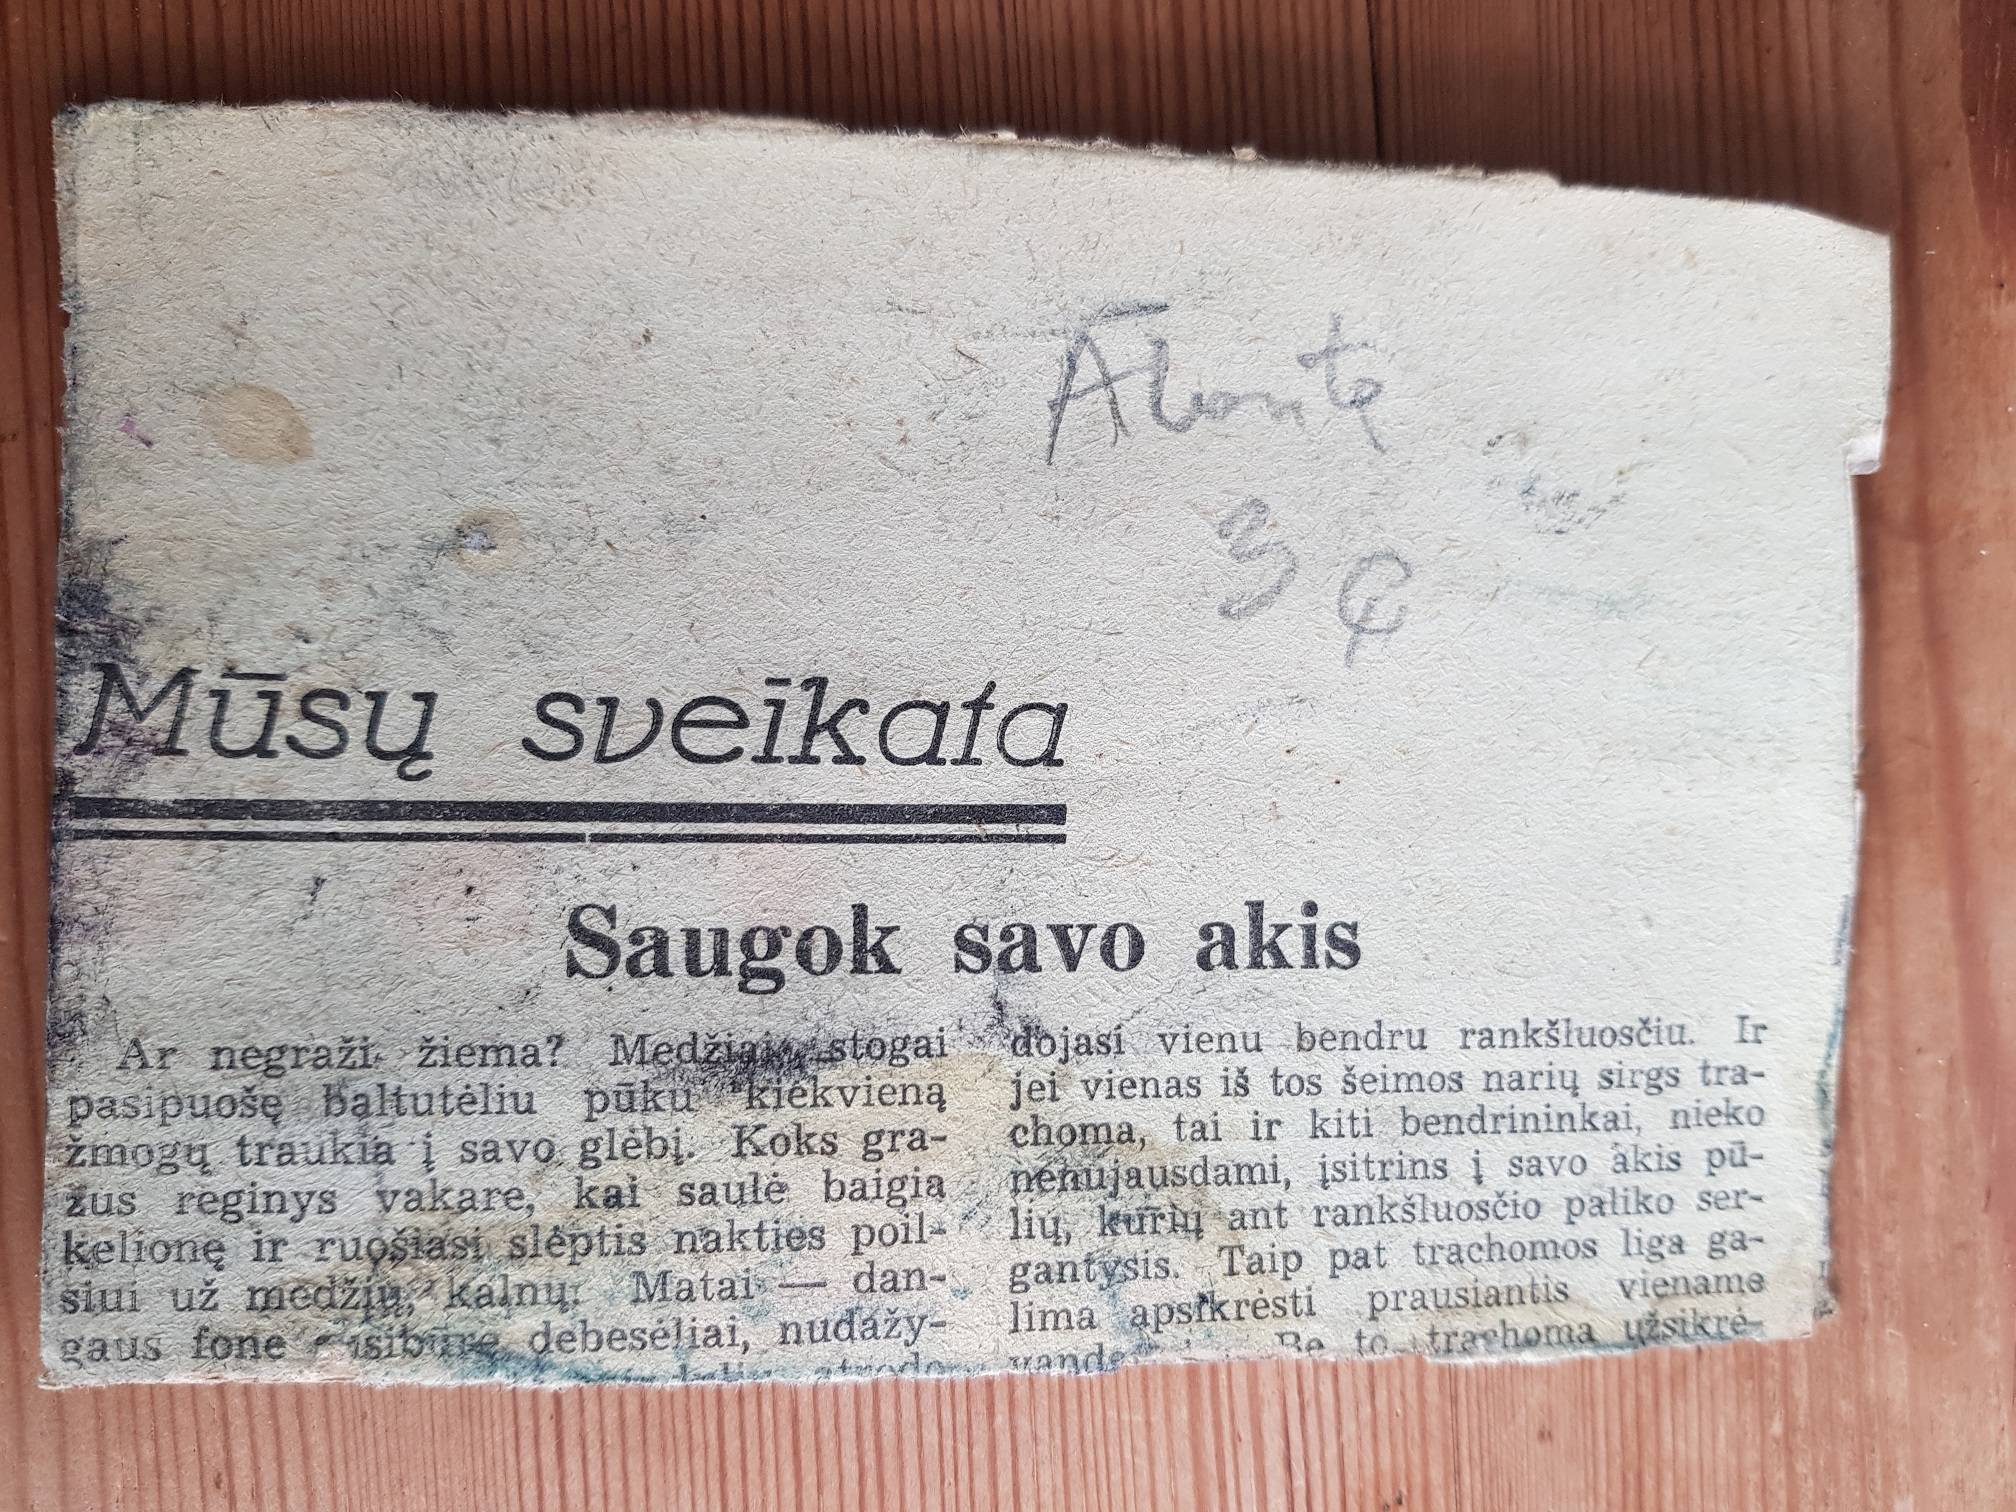 Mūsų sveikata
Saugok savo akis
Ar negraži žiema? Medžiai, stogai
pasipuošę baltutėliu pūku kiekvieną
žmogų traukia į savo glėbį. Koks gra-
žus reginys vakare, kai saulė baigia
kelionę ir ruošiasi slėptis nakties poil-
siui už medžių, kalnų. Matai — dan-
gaus fone susibūrę debesėliai, nudažy-
atrodo
dojasi vienu bendru rankšluosčiu. Ir
jei vienas iš tos šeimos narių sirgs tra-
choma, tai ir kiti bendrininkai, nieko
nenujausdami, įsitrins į savo akis pū-
lių, kurių ant rankšluosčio paliko ser-
gantysis. Taip pat trachomos liga ga-
lima apsikrėsti prausiantis viename
Be to trachoma užsikrė-